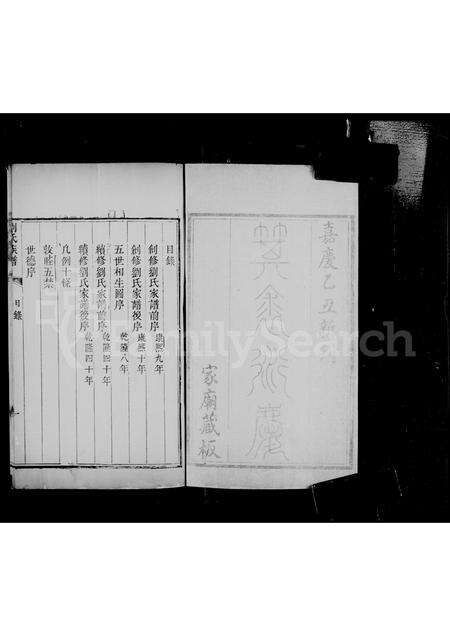 嘉慶乙丑
家廟藏板
目錄
創修劉氏家譜前序 康熙九年
創修劉氏家譜後序 康熙十年
五世相生圖序 乾隆八年
續修劉氏家譜前序 乾隆四十年
續修劉氏家譜後序 乾隆四十年
凡例十條
敦睦五禁
世德序
劉氏族譜
目錄
FamilySearch